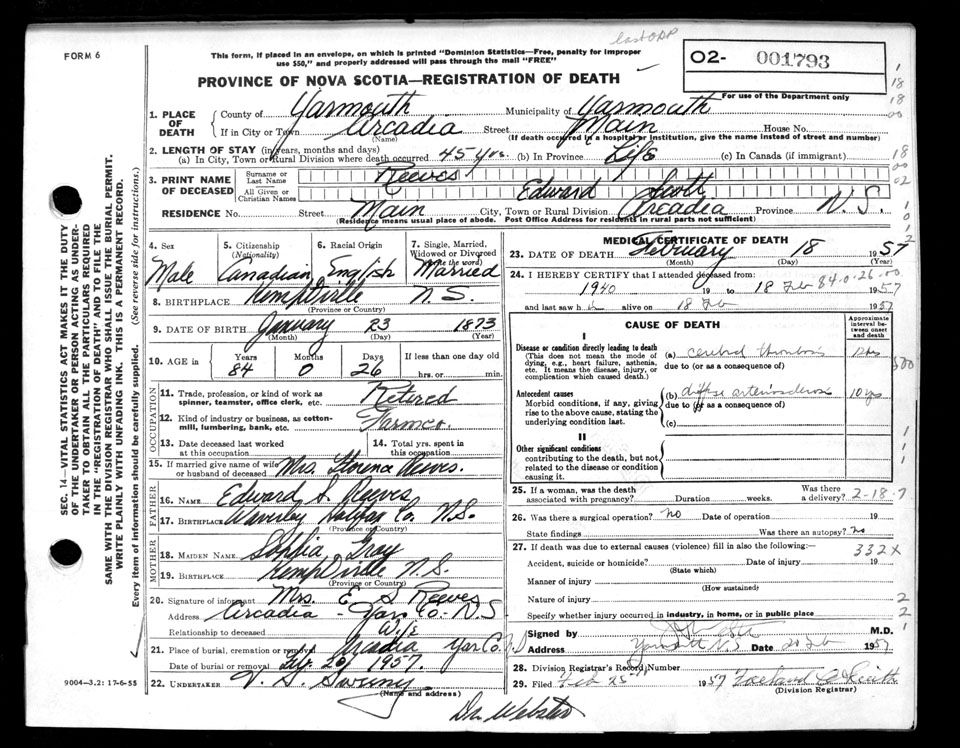 last ODP
FORM 6
This form, if placed in an envelope, on which is printed "Dominion Statistics—Free, penalty for improper
use $50," and properly addressed will pass through the mail "FREE"
O2- 001793
For use of the Department only
PROVINCE OF NOVA SCOTIA—REGISTRATION OF DEATH
1. PLACE OF DEATH
County of Yarmouth Municipality of Yarmouth
If in City or Town Arcadia Street Main House No.
(Name) (If death occurred in a hospital or institution, give the name instead of street and number)
2. LENGTH OF STAY (in years, months and days)
(a) In City, Town or Rural Division where death occurred 45 yrs. (b) In Province Life (c) In Canada (if immigrant)
3. PRINT NAME OF DECEASED
Surname or Last Name Reeves
All Given or Christian Names Edward Scott
RESIDENCE No. Street Main City, Town or Rural Division Arcadia Province N.S.
(Residence means usual place of abode. Post Office Address for Residents in rural parts not sufficient)
4. Sex Male
5. Citizenship (Nationality) Canadian
6. Racial Origin English
7. Single, Married, Widowed or Divorced (write the word) Married
8. BIRTHPLACE Kemptville N.S.
(Province or Country)
9. DATE OF BIRTH January 23 1873
(Month) (Day) (Year)
10. AGE in Years 84 Months 0 Days 26 If less than one day
hrs. or min.
OCCUPATION
11. Trade, profession, or kind of work as spinner, teamster, office clerk, etc. Retired
12. Kind of industry or business, as cotton-mill, lumbering, bank, etc.
13. Date deceased last worked at this occupation
14. Total yrs. spent in this occupation
15. If married give name of wife or husband of deceased Mrs. Reeves.
FATHER
16. NAME Edward S. Reeves
17. BIRTHPLACE Waverley Halifax Co. N.S.
(Province or Country)
MOTHER
18. MAIDEN NAME Sophia Gray
19. BIRTHPLACE Kemptville N.S.
(Province or Country)
20. Signature of informant Mrs. E S Reeves
Address Arcadia - Yar. Co. N.S
Relationship to deceased Wife
21. Place of burial, cremation or removal Arcadia Yar Co.
Date of burial or removal Feb. 20, 1957.
22. UNDERTAKER V. S. Sweeny
(Name and address)
Dr. Webster
9004—3.2: 17-6-55
SEC. 14—VITAL STATISTICS ACT MAKES IT THE DUTY
OF THE UNDERTAKER OR PERSON ACTING AS UNDERTAKER TO OBTAIN ALL THE PARTICULARS REQUIRED
IN THE "REGISTRATION OF DEATH" AND TO FILE THE
SAME WITH THE DIVISION REGISTRAR WHO SHALL ISSUE THE BURIAL PERMIT.
WRITE PLAINLY WITH UNFADING INK. THIS IS A PERMANENT RECORD.
Every item of information should be carefully supplied. (See reverse side for instructions.)
MEDICAL CERTIFICATE OF DEATH
23. DATE OF DEATH February 18 1957
(Day) (Year)
24. I HEREBY CERTIFY that I attended deceased from:
1940 19 to 18 Feb 1957
84.0.26.00
and last saw h alive on 18 Feb 1957
CAUSE OF DEATH
Approximate interval between onset and death
I
Disease or condition directly leading to death
(This does not mean the mode of dying, e.g., heart failure, asthenia, etc. It means the disease, injury, or complication which caused death.)
(a) cerebral thrombosis
due to (or as a consequence of)
Antecedent causes
Morbid conditions, if any, giving rise to the above cause, stating the underlying condition last.
(b) diffuse arteriosclerosis 10 yrs
due to (or as a consequence of)
(c)
II
Other significant conditions
contributing to the death, but not related to the disease or condition causing it.
25. If a woman, was the death associated with pregnancy? Duration weeks. Was there a delivery?
2-18-7
26. Was there a surgical operation? No Date of operation 19
State findings Was there an autopsy? No
27. If death was due to external causes (violence) fill in also the following:—
332X
Accident, suicide or homicide? Date of injury 19
(State which)
Manner of injury
(How sustained)
Nature of injury
Specify whether injury occurred in industry, in home, or in public place
Signed by M.D.
Address Yarmouth N.S. Date 20 Feb 1957
28. Division Registrar's Record Number
29. Filed Feb 25th 1957
(Division Registrar)